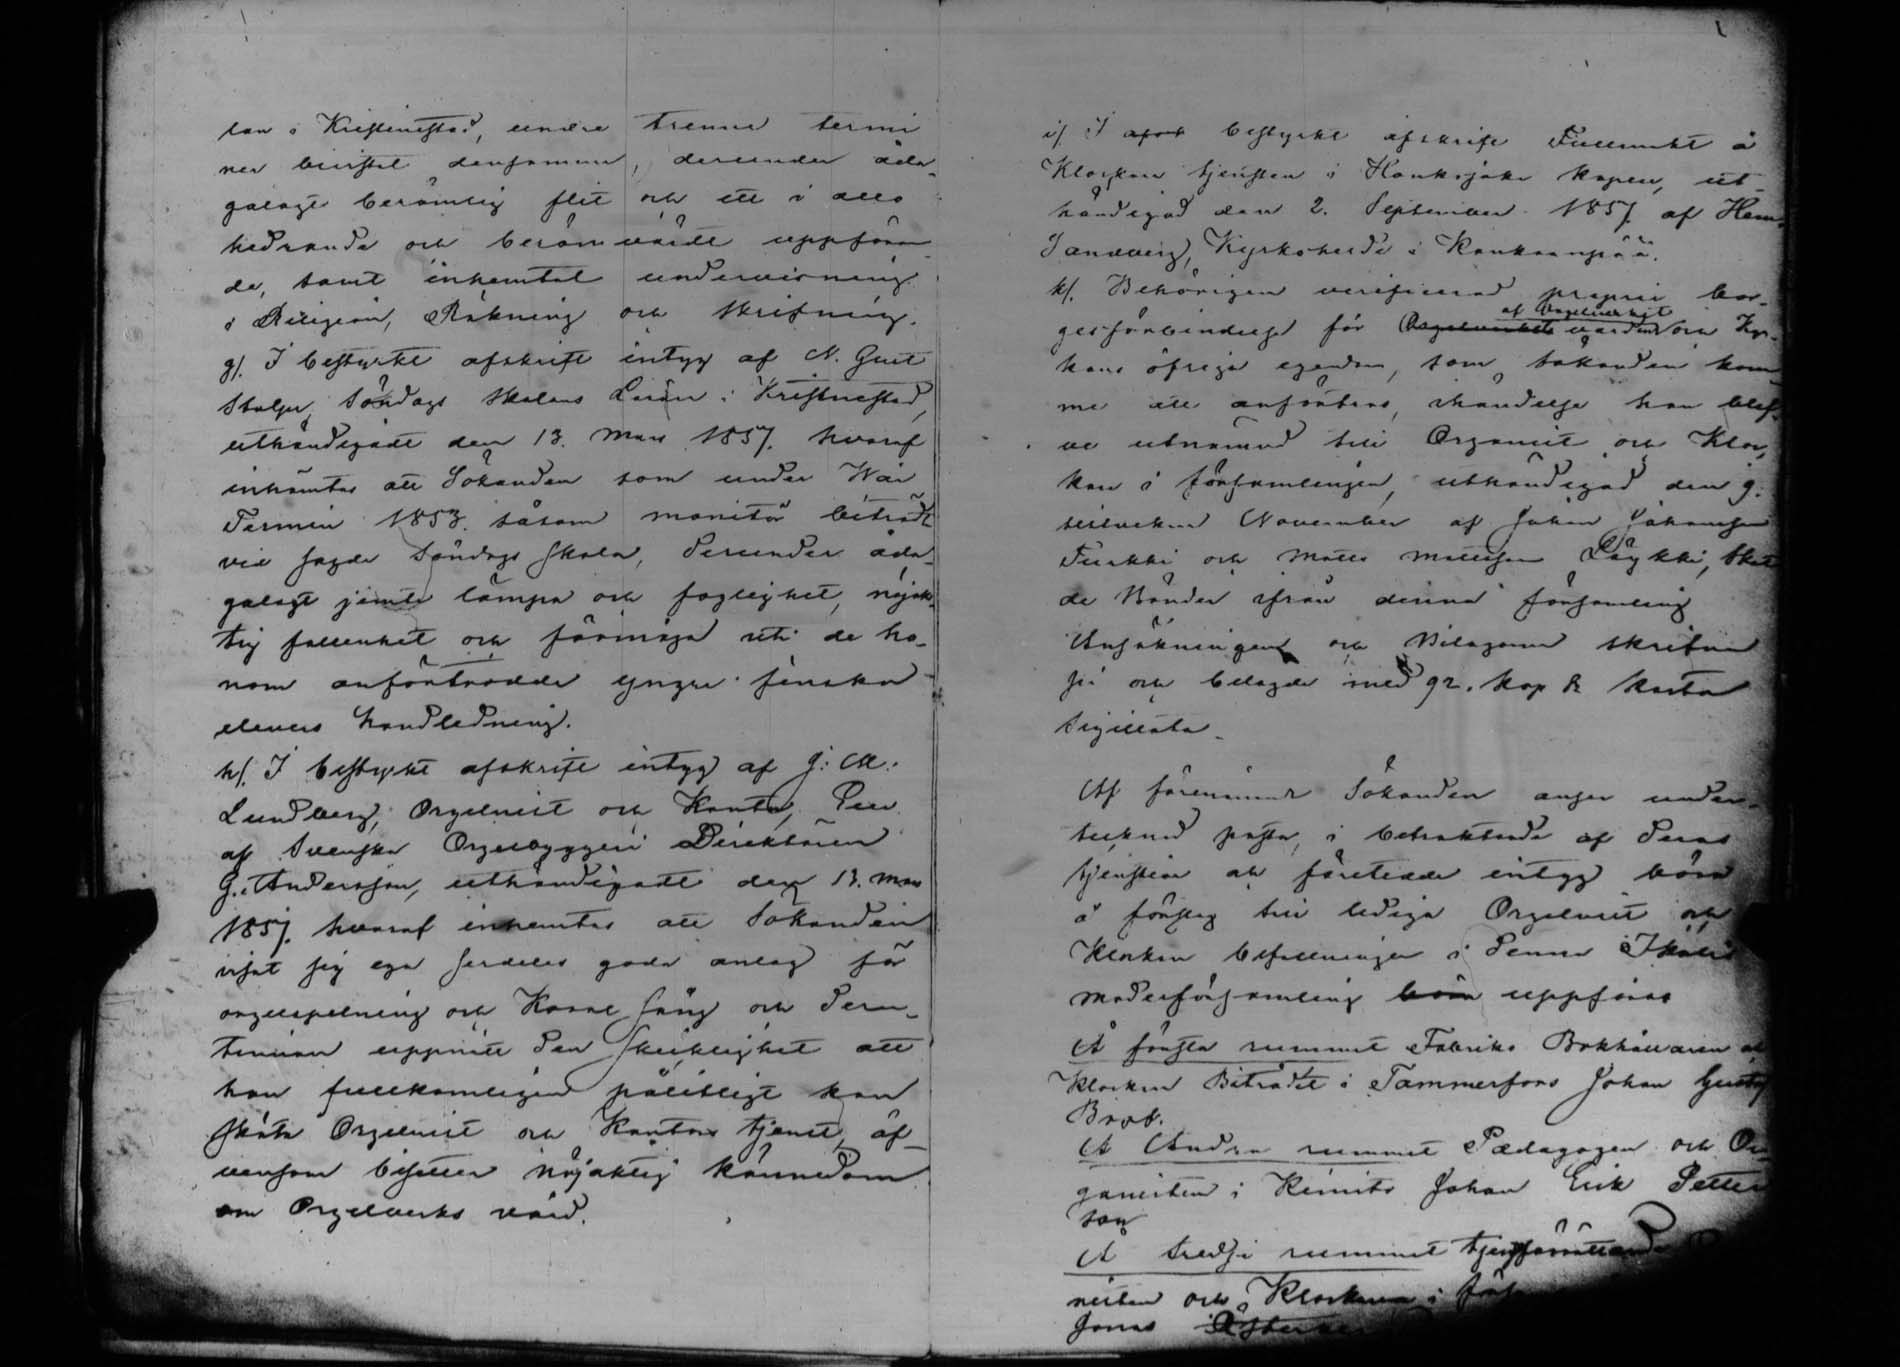 lan i Kristinestad, under trenne termi
ner bivistat densamma, derunder åda-
galagt berömlig flit och ett i allo
hedrande och berömvärdt uppföran
de, samt inhemtat undervisning
i Religion, Räkning och Skrifning.
g/. I bestyrkt afskrift intyg af N. Gust
Söndags Skolans Lärare i Kristinestad,
uthändigadt den 13. Mars 1857. hvaraf
inhämtas att Sökanden som under Wår
Termin 1853. såsom monitör biträdt
vid sagde Söndags Skola, derunder åda-
galagt jemte lämpa och foglighet, nöjak-
tig fallenhet och förmåga uti de ho-
nom anförtrodde yngre finska
elevers handledning.
h/. I bestyrkt afskrift intyg af J. M.
Lundberg, Orgelnist och Kantor,
af Svenska Orgelbyggeri Direktören
G. Andersson, uthändigadt den 13. Mars
1857. hvaraf inhemtas att Sökanden
visat sig ega serdeles goda anlag för
orgelspelning och Koral Sång och dera-
uppnått den Skicklighet att
han fullkomligen pålitligt kan
sköta Orgelnist och Kantors tjenst, äf-
vensom besitter nöjaktig kännedom
om Orgelverks vård.
i/. I bestyrkt afskrift Fullmakt å
Klockare tjensten i Honkajoki kapell, ut-
händigad den 2. September 1857. af Herr
Sandberg, Kyrkoherde i Kankaanpää.
k/. Behörigen verificerad proprie bor-
af Orgelverket
gesförbindelse för Orgelverkets vården och Kyr-
kans öfriga egendom, som sökanden kom-
me att anförtros, ihändelse han blef-
ve utnämnd till Organist och Kloc-
kare i församlingen, uthändigad den 9.
sistvekne November af Johan Johansson
Turkki och Matts Mattsson Lyykki, Skat
de Bönder ifrån denna församling
Ansökningen och Bilagorne skrifne
på och belagde med 92. kop. Sr karta
sigillata.
Af förenämnde Sökanden anser under-
tecknad pastor, i betraktande af deras
tjenstår och företedde intyg böra
å förslag till lediga Orgelnist och
Klockare befattningen i denna Ikalis
moderförsamling böra uppföras
Å första rummet Fabriks Bokhållaren och
Klockare Biträdet i Tammerfors Johan Gustaf
Å Andra rummet Pædagogen och Or-
ganisten i Kimito Johan Erik Petter
son
Å tredje rummet tjenstförrättande
nisten och Klockaren i
Jonas